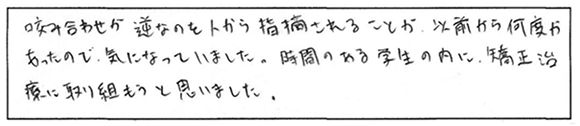 咬み合わせが逆なのを人から指摘されることが、以前から何度か
あったので、気になっていました。時間のある学生の内に、矯正治
療に取り組もうと思いました。